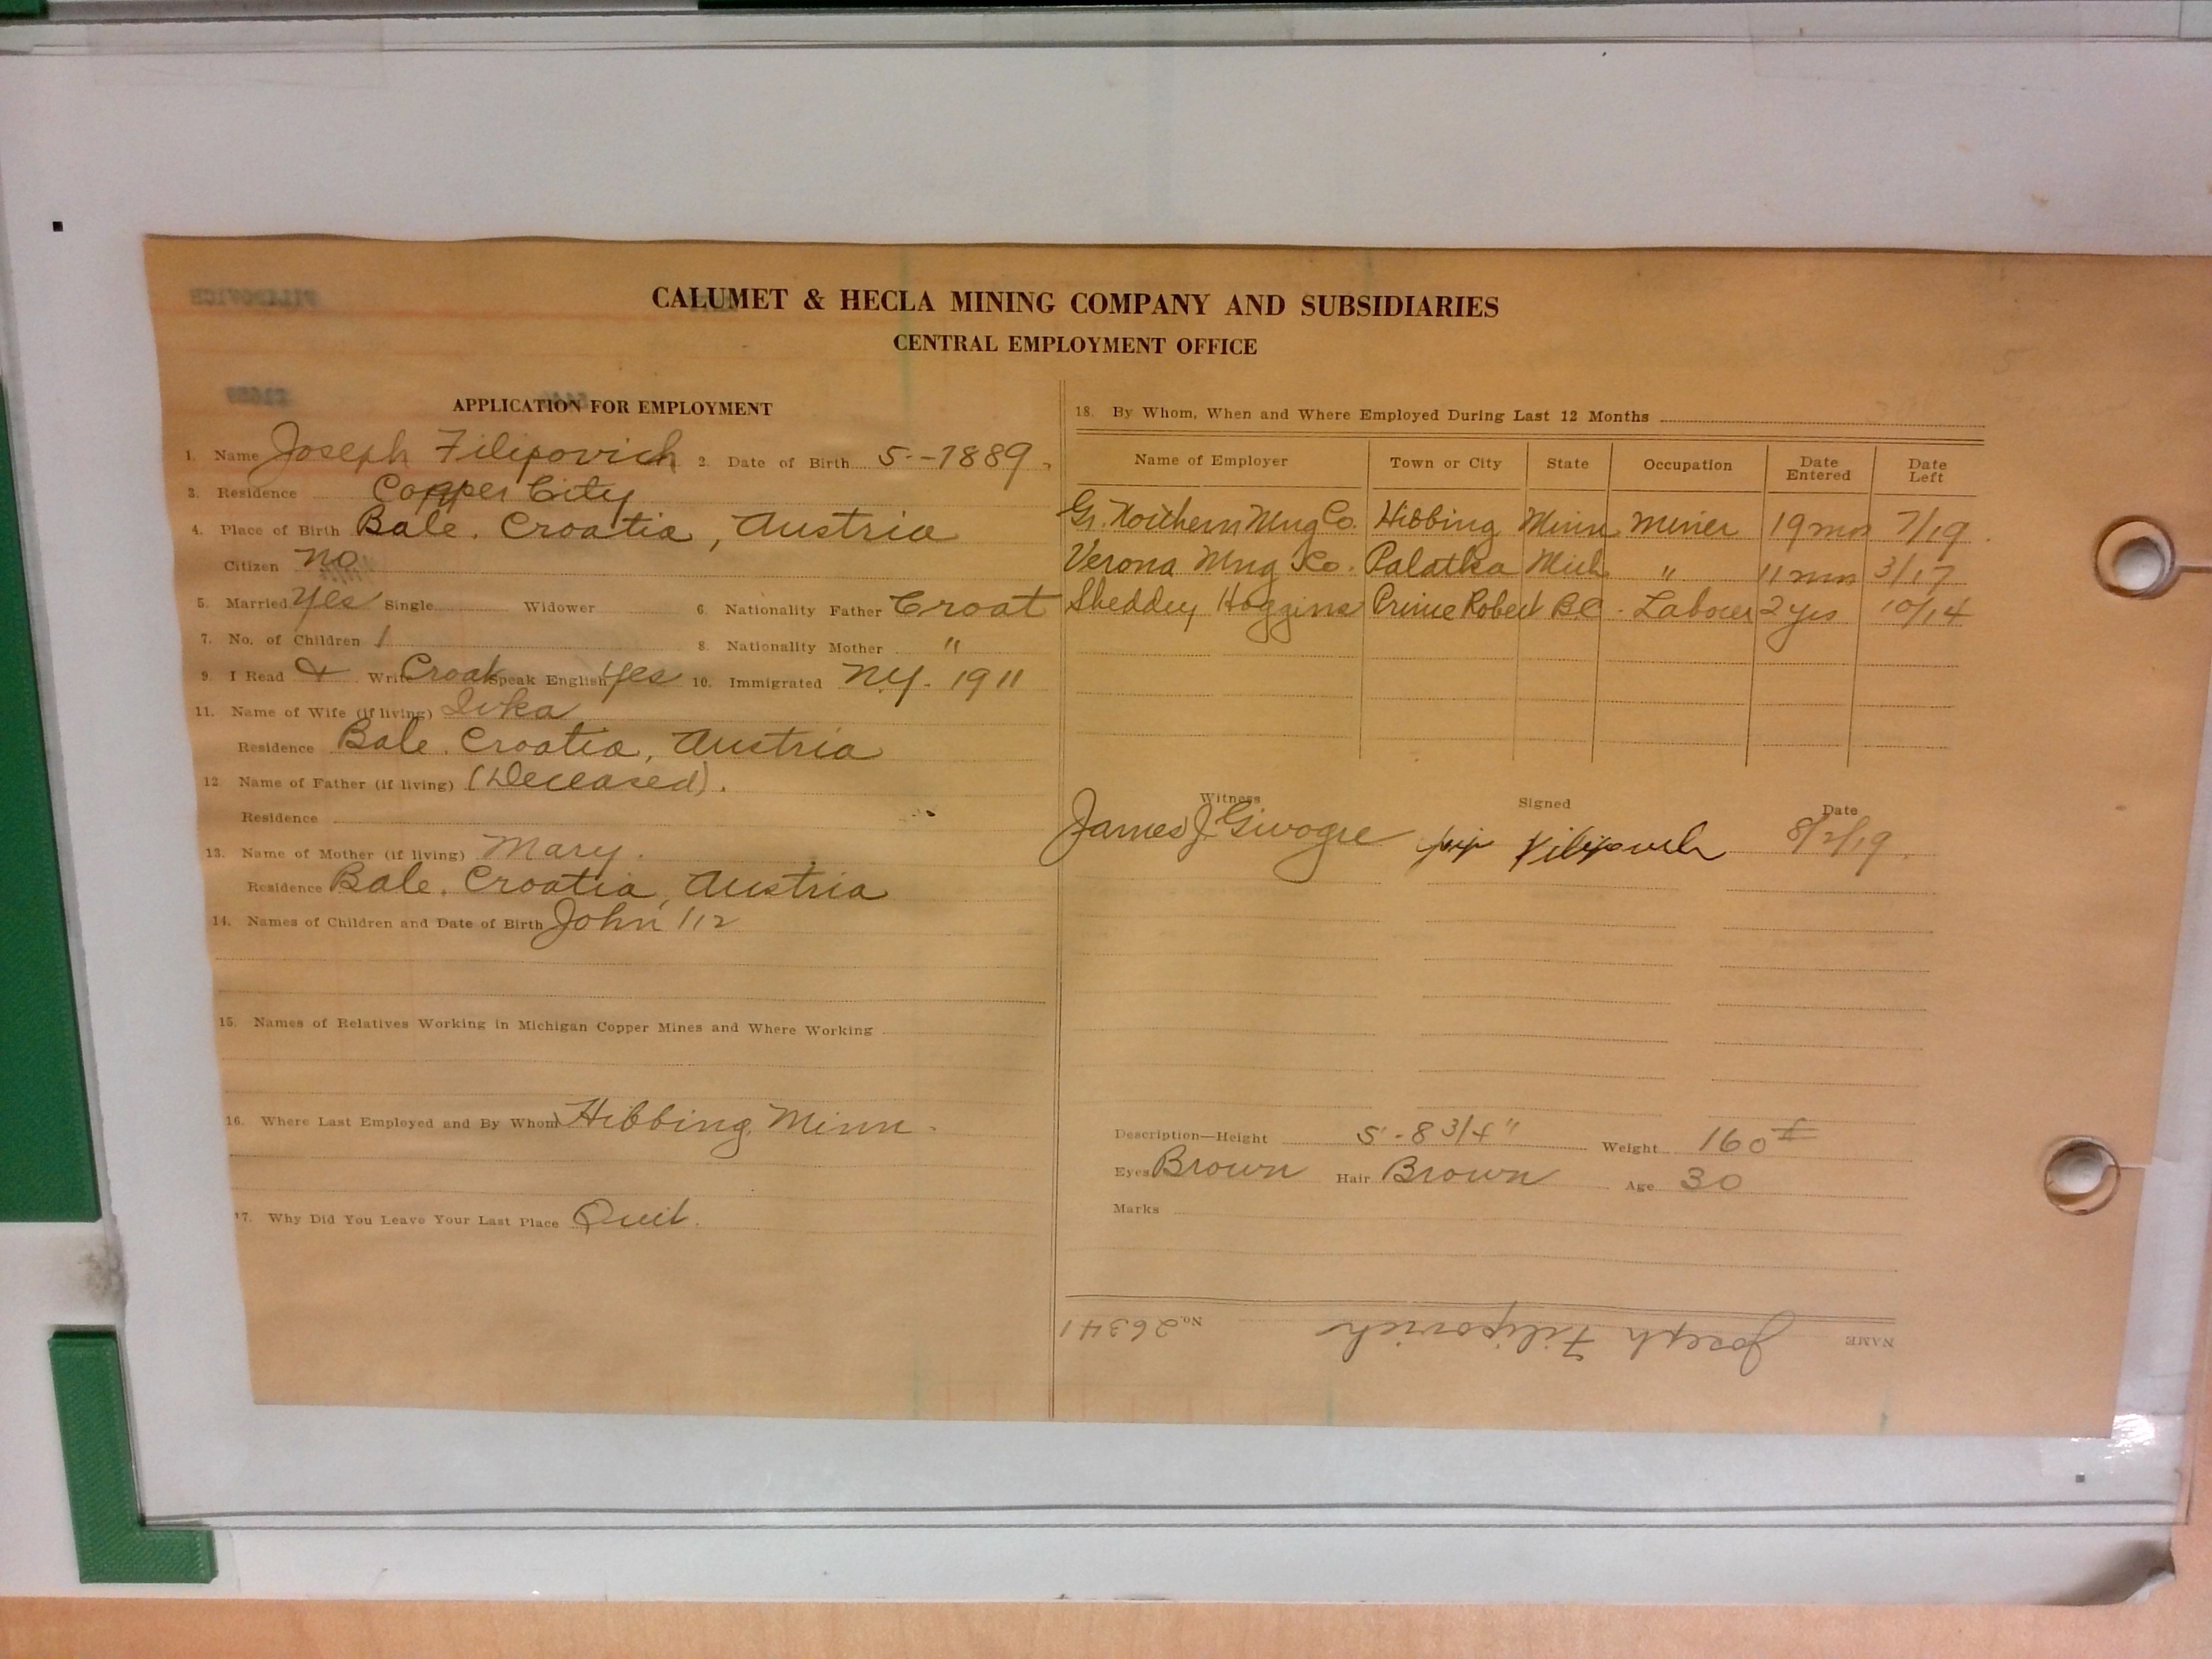 CALUMET & HECLA MINING COMPANY AND SUBSIDIARIES
CENTRAL EMPLOYMENT OFFICE
APPLICATION FOR EMPLOYMENT
1. Name Joseph Filipovich 2. Date of Birth 5--1889
3. Residence Copper City
4. Place of Birth Bale, Croatia, Austria
Citizen no
5. Married yes Single Widower 6. Nationality Father Croat
7. No. of Children 1 8. Nationality Mother "
9. I Read & Write Croat Speak English yes 10. Immigrated N.Y. 1911
11. Name of Wife (if living) Ivka
Residence Bale, Croatia, Austria
12. Name of Father (if living) (Deceased).
Residence
13. Name of Mother (if living) Mary.
Residence Bale, Croatia, Austria
14. Names of Children and Date of Birth John 112
15. Names of Relatives Working in Michigan Copper Mines and Where Working
16. Where Last Employed and By Whom Hibbing Minn.
17. Why Did You Leave Your Last Place Quit.
18. By Whom, When and Where Employed During Last 12 Months
Name of Employer Town or City State Occupation Date Entered Date Left
Gr. Northern Mng Co. Hibbing Minn miner 19 mos 7/19
Verona Mng Co. Palatka Mich " 11 mos 3/17
Sheddey Hoggins Prince Robert B.C. Laborer 2 yrs 10/14
Witness Signed Date
James J. Filipovich 8/2/19
Description—Height 5'-8 3/4" Weight 160#
Eyes Brown Hair Brown Age 30
Marks
NAME Joseph Filipovich No. 26341